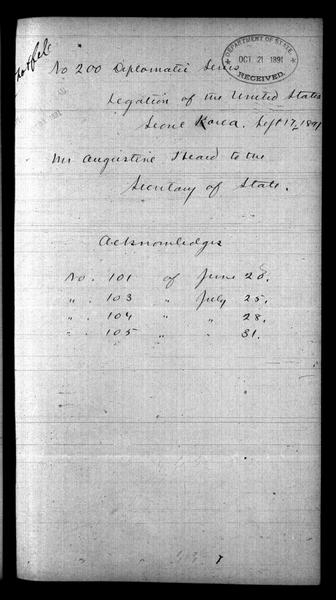 DEPARTMENT OF STATE
OCT 21 1891
RECEIVED.
No 200 Diplomatic Series
Legation of the United States
Seoul Korea. Sept 17, 1891
Mr Augustine Heard to the
Secretary of State.
Acknowledges
No. 101 of June 20.
" 103 " July 25.
" 104 " " 28.
" 105 " " 31.